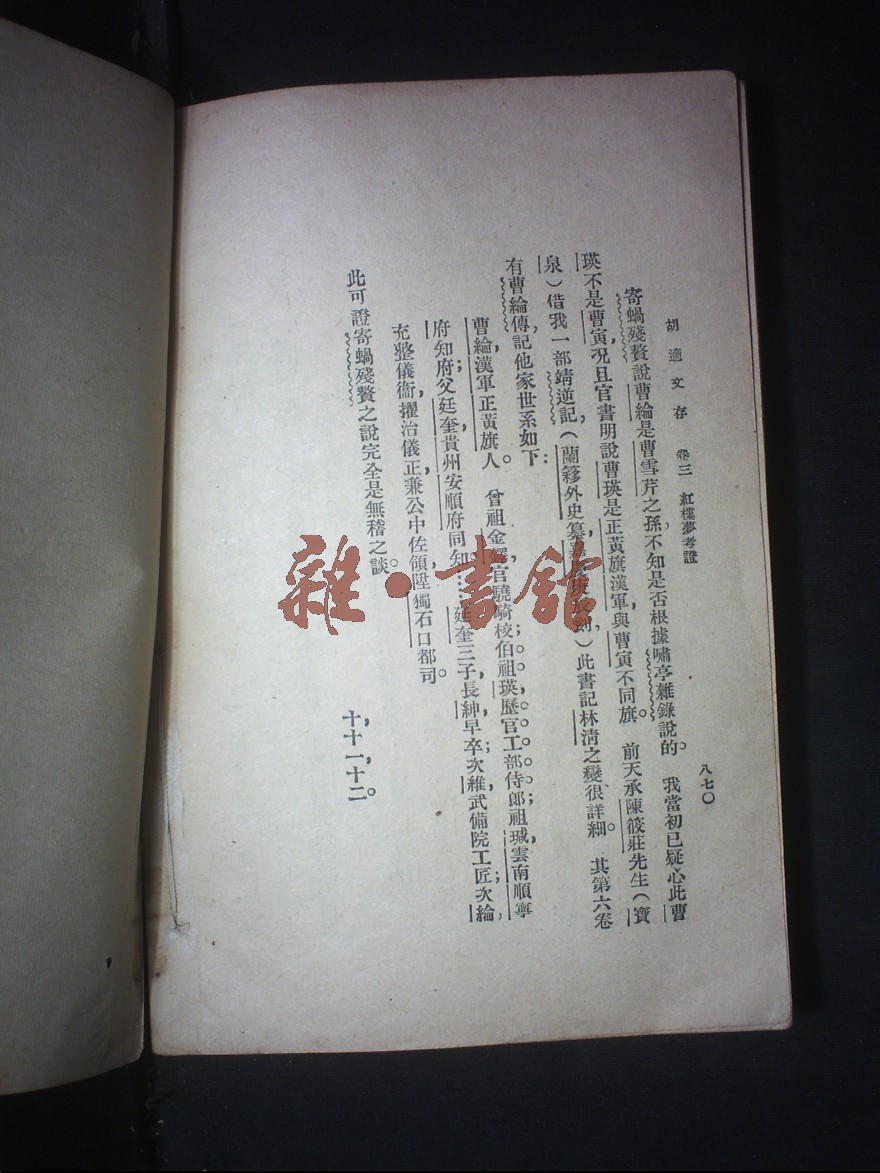 胡適文存 卷三 紅樓夢考證 八七〇
寄蝸殘贅說曹綸是曹雪芹之孫，不知是否根據嘯亭雜錄說的。 我當初已疑心此曹
瑛不是曹寅，況且官書明說曹瑛是正黃旗漢軍，與曹寅不同旗。 前天承陳筱莊先生（寶
泉）借我一部靖逆記（蘭簃外史纂，嘉慶庚辰刻）此書記林清之變很詳細。 其第六卷
有曹綸傳，記他家世系如下：
曹綸，漢軍正黃旗人。 曾祖金鐸，官驍騎校；伯祖瑛，歷官工部侍郎；祖瑊，雲南順寧
府知府；父廷奎，貴州安順府同知。……廷奎三子，長紳，早卒；次維，武備院工匠；次綸，
充整儀衞，擢治儀正，兼公中佐領，陞獨石口都司。
此可證寄蝸殘贅之說完全是無稽之談。
十，十一，十二。
雜·書館